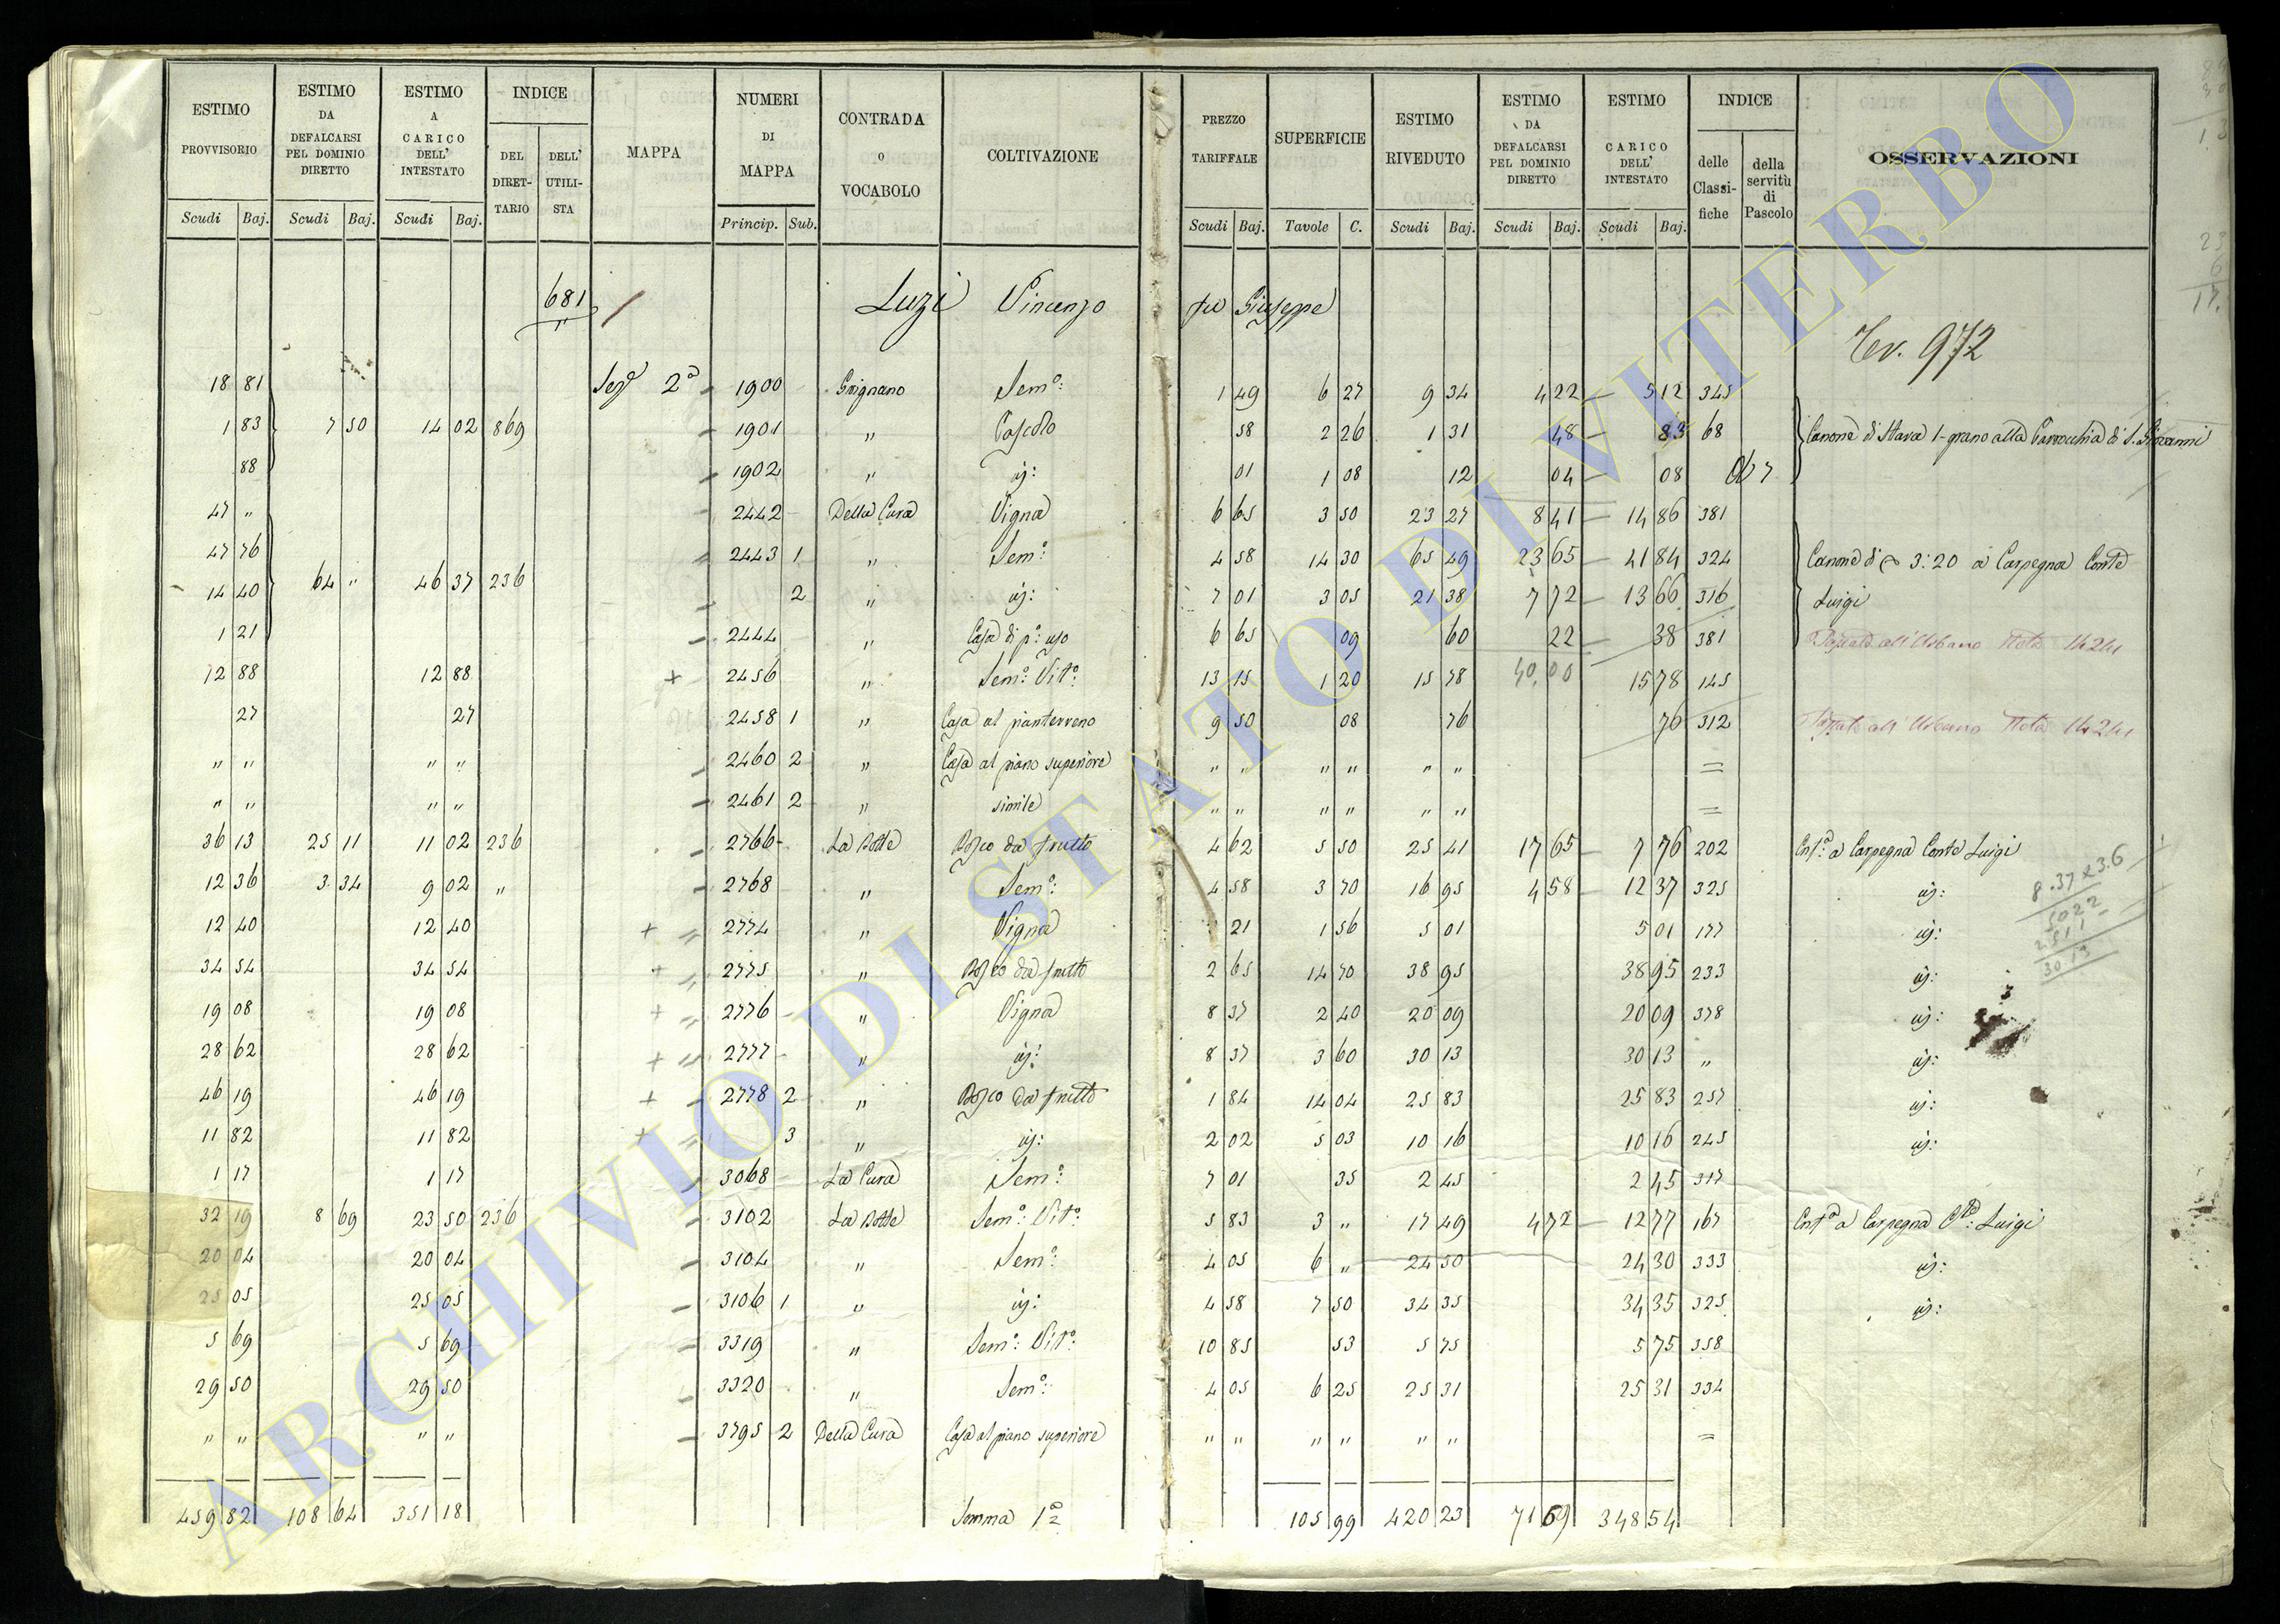 ESTIMO PROVVISORIO | ESTIMO DA DEFALCARSI PEL DOMINIO DIRETTO | ESTIMO A CARICO DELL' INTESTATO | INDICE DEL DIRET-TARIO | DELL' UTILI-STA | MAPPA | NUMERI DI MAPPA | CONTRADA o VOCABOLO | COLTIVAZIONE | PREZZO TARIFFALE | SUPERFICIE | ESTIMO RIVEDUTO | ESTIMO DA DEFALCARSI PEL DOMINIO DIRETTO | ESTIMO A CARICO DELL' INTESTATO | INDICE delle Classi-fiche | della servitù di Pascolo | OSSERVAZIONI
Scudi Baj. | Scudi Baj. | Scudi Baj. | Princip. Sub. | Scudi Baj. | Tavole C. | Scudi Baj. | Scudi Baj. | Scudi Baj.
681 Luzi Vincenzo fu Giuseppe
972
18 81 | Sezе 2a 1900 | Grignano | Semo: | 1 49 | 6 27 | 9 34 | 4 22 | 5 12 | 345
1 83 | 7 50 | 14 02 | 869 | 1901 | " | Pascolo | 58 | 2 26 | 1 31 | 48 | 83 | 68 | Canone di Stara 1 grano alla Parrocchia di S. Giovanni
88 | 1902 | " | id: | 01 | 1 08 | 12 | 04 | 08
47 " | 2442 | Della Cura | Vigna | 6 65 | 3 50 | 23 27 | 8 41 | 14 86 | 381
47 76 | 2443 1 | " | Semo: | 4 58 | 14 30 | 65 49 | 23 65 | 41 84 | 324 | Canone di 3:20 a Carpegna Conte
14 40 | 64 " | 46 37 | 236 | 2 | " | id: | 7 01 | 3 05 | 21 38 | 7 72 | 13 66 | 316 | Luigi
1 21 | 2444 | " | Casa di po: uso | 6 65 | 09 | 60 | 22 | 38 | 381 | Passato all'Urbano Nota
12 88 | 12 88 | + 2456 | " | Semo: Vito: | 13 15 | 1 20 | 15 78 | 40.00 | 15 78 | 145
27 | 27 | 2458 1 | " | Casa al pianterreno | 9 50 | 08 | 76 | 76 | 312 | Passato all'Urbano Nota
" " | " " | 2460 2 | " | Casa al piano superiore | " " | " " | " " | =
" " | " " | 2461 2 | " | simile | " " | " " | " " | =
36 13 | 25 11 | 11 02 | 236 | 2766 | La Botte | Bosco da frutto | 4 62 | 5 50 | 25 41 | 17 65 | 7 76 | 202 | Enfa: a Carpegna Conte Luigi
12 36 | 3 34 | 9 02 | " | 2768 | " | Semo: | 4 58 | 3 70 | 16 95 | 4 58 | 12 37 | 325 | id:
12 40 | 12 40 | + 2774 | " | Vigna | 21 | 1 56 | 5 01 | 5 01 | 177 | id:
34 54 | 34 54 | + 2775 | " | Bosco da frutto | 2 65 | 14 70 | 38 95 | 38 95 | 233 | id:
19 08 | 19 08 | + 2776 | " | Vigna | 8 37 | 2 40 | 20 09 | 20 09 | 378 | id:
28 62 | 28 62 | + 2777 | " | id: | 8 37 | 3 60 | 30 13 | 30 13 | " | id:
46 19 | 46 19 | + 2778 2 | " | Bosco da frutto | 1 84 | 14 04 | 25 83 | 25 83 | 257 | id:
11 82 | 11 82 | + 3 | " | id: | 2 02 | 5 03 | 10 16 | 10 16 | 245 | id:
1 17 | 1 17 | 3068 | La Cura | Semo: | 7 01 | 35 | 2 45 | 2 45 | 317
32 19 | 8 69 | 23 50 | 236 | 3102 | La Botte | Semo: Vito: | 5 83 | 3 " | 17 49 | 4 72 | 12 77 | 167 | Enfa a Carpegna Cte: Luigi
20 04 | 20 04 | 3104 | " | Semo: | 4 05 | 6 " | 24 30 | 24 30 | 333 | id:
25 05 | 25 05 | 3106 1 | " | id: | 4 58 | 7 50 | 34 35 | 34 35 | 325 | id:
5 69 | 5 69 | 3319 | " | Semo: Vito: | 10 85 | 53 | 5 75 | 5 75 | 358
29 50 | 29 50 | 3320 | " | Semo: | 4 05 | 6 25 | 25 31 | 25 31 | 334
" " | " " | 3795 2 | Della Cura | Casa al piano superiore | " " | " " | " " | =
459 82 | 108 64 | 351 18 | Somma 1a | 105 99 | 420 23 | 71 69 | 348 54
8.37 x 3.6
5022
2511
30.13
ARCHIVIO DI STATO DI VITERBO